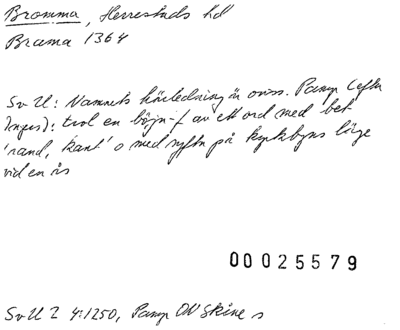 Bromma, Herrestads hd
Brama 1364
SvU: Namnets härledning är oviss. Pamp (efter
Ingers): trol en böjn-f av ett ord med bet
'rand, kant' o med syftn på kyrkbyns läge
vid en ås
00025579
SvU 2 4:1250, Pamp ON Skåne s